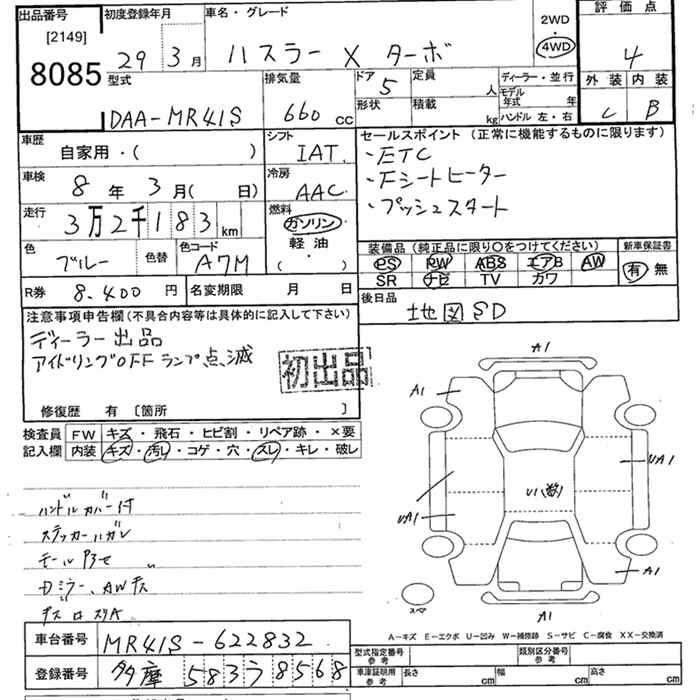 出品番号 [2149] 8085
初度登録年月 29年 3月
車名・グレード ハスラー X ターボ
2WD・4WD
評価点 4
外装 C 内装 B
型式 DAA-MR41S
排気量 660 cc
ドア 5
形状
定員 人
積載 kg
ディーラー・並行
モデル年式 年
ハンドル 左・右
車歴 自家用・( )
シフト IAT
車検 8年 3月( 日)
冷房 AAC
走行 3万2千183km
燃料 ガソリン 軽油 ・ ( )
色 ブルー 色替
色コード A7M
R券 8.400円
名変期限 月 日
セールスポイント (正常に機能するものに限ります)
・ETC
・Fシートヒーター
・プッシュスタート
装備品 (純正品に限り○をつけてください)
PS RW ABS エアB AW
SR ナビ TV カワ
新車保証書 有 無
後日品 地図SD
注意事項申告欄 (不具合内容等は具体的に記入して下さい)
ディーラー出品
アイドリングOFFランプ点滅
初出品
修復歴 有 〔箇所 〕
検査員記入欄
FW キズ・飛石・ヒビ割・リペア跡・×要
内装 キズ・汚レ・コゲ・穴・スレ・キレ・破レ
ハンドルカバー付
ステッカーハガレ
A1
A1
UA1
U1(数)
UA1
A1
スペア
A1
A-キズ E-エクボ U-凹み W-補修跡 S-サビ C-腐食 XX-交換済
車台番号 MR41S-622832
登録番号 多摩 583 ワ 8568
型式指定番号 参考
類別区分番号 参考
車庫証明用 参考 長さ cm 幅 cm 高さ cm